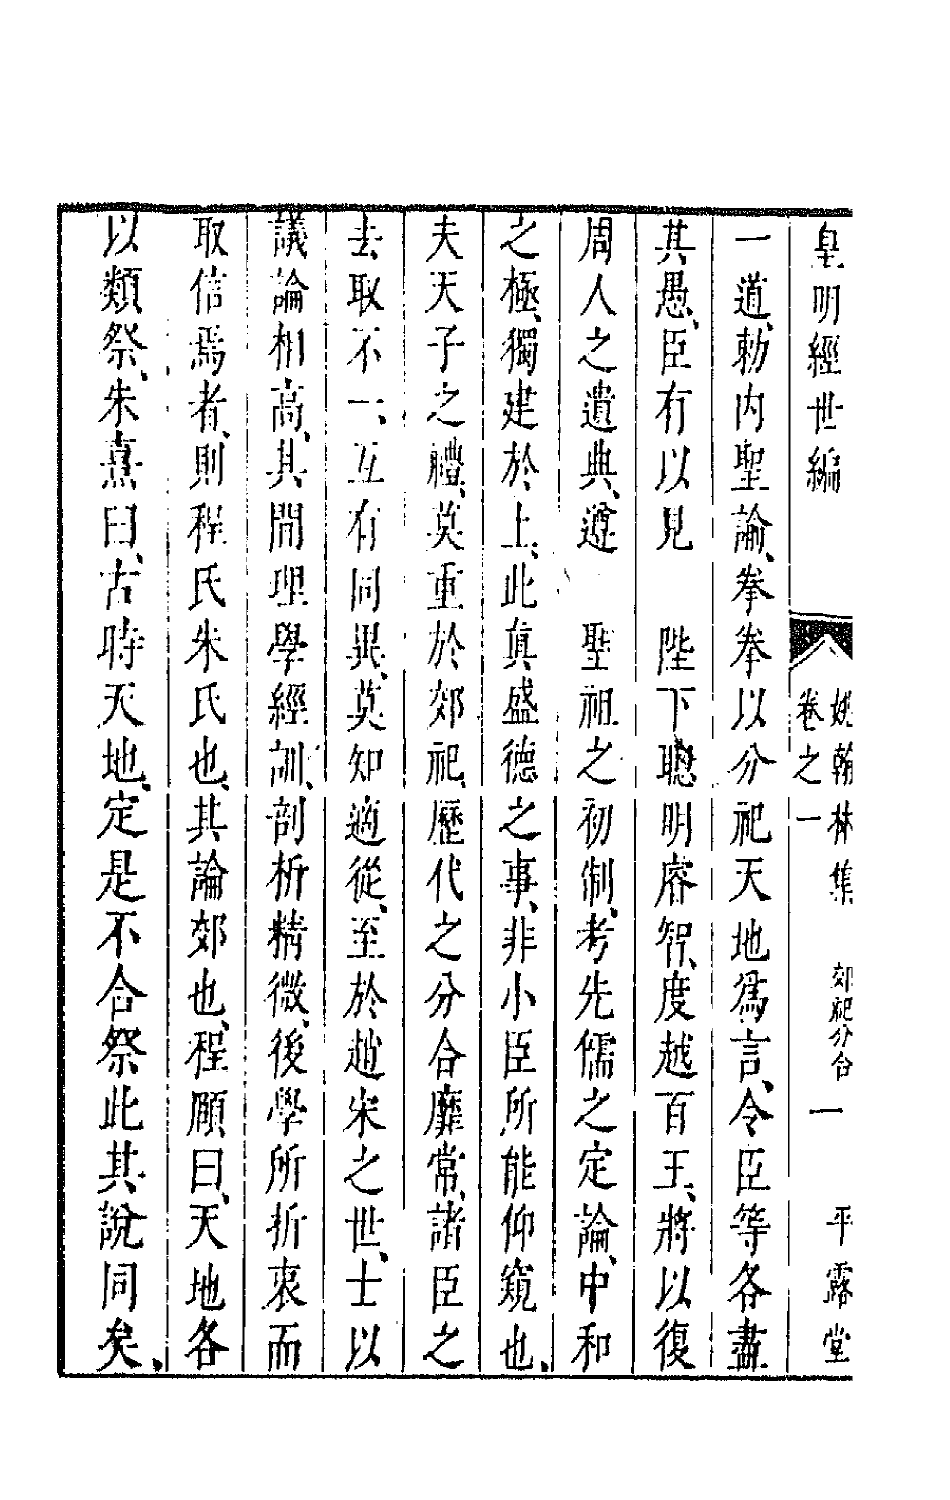 皇明經世編
姚翰林集 郊祀分合
卷之一 一 平露堂
一道、勅內聖論、拳拳以分祀天地爲言、令臣等各盡
其愚、臣有以見 陛下聰明睿智、度越百王、將以復
周人之遺典、遵 聖祖之初制、考先儒之定論、中和
之極、獨建於上、此眞盛德之事、非小臣所能仰窺也、
夫天子之禮、莫重於郊祀、歷代之分合靡常、諸臣之
去取不一、互有同異、莫知適從、至於趙宋之世、士以
議論相高、其間理學經訓、剖析精微、後學所折衷而
取信焉者、則程氏朱氏也、其論郊也、程頤曰、天地各
以類祭、朱熹曰、古時天地、定是不合祭此其說同矣、